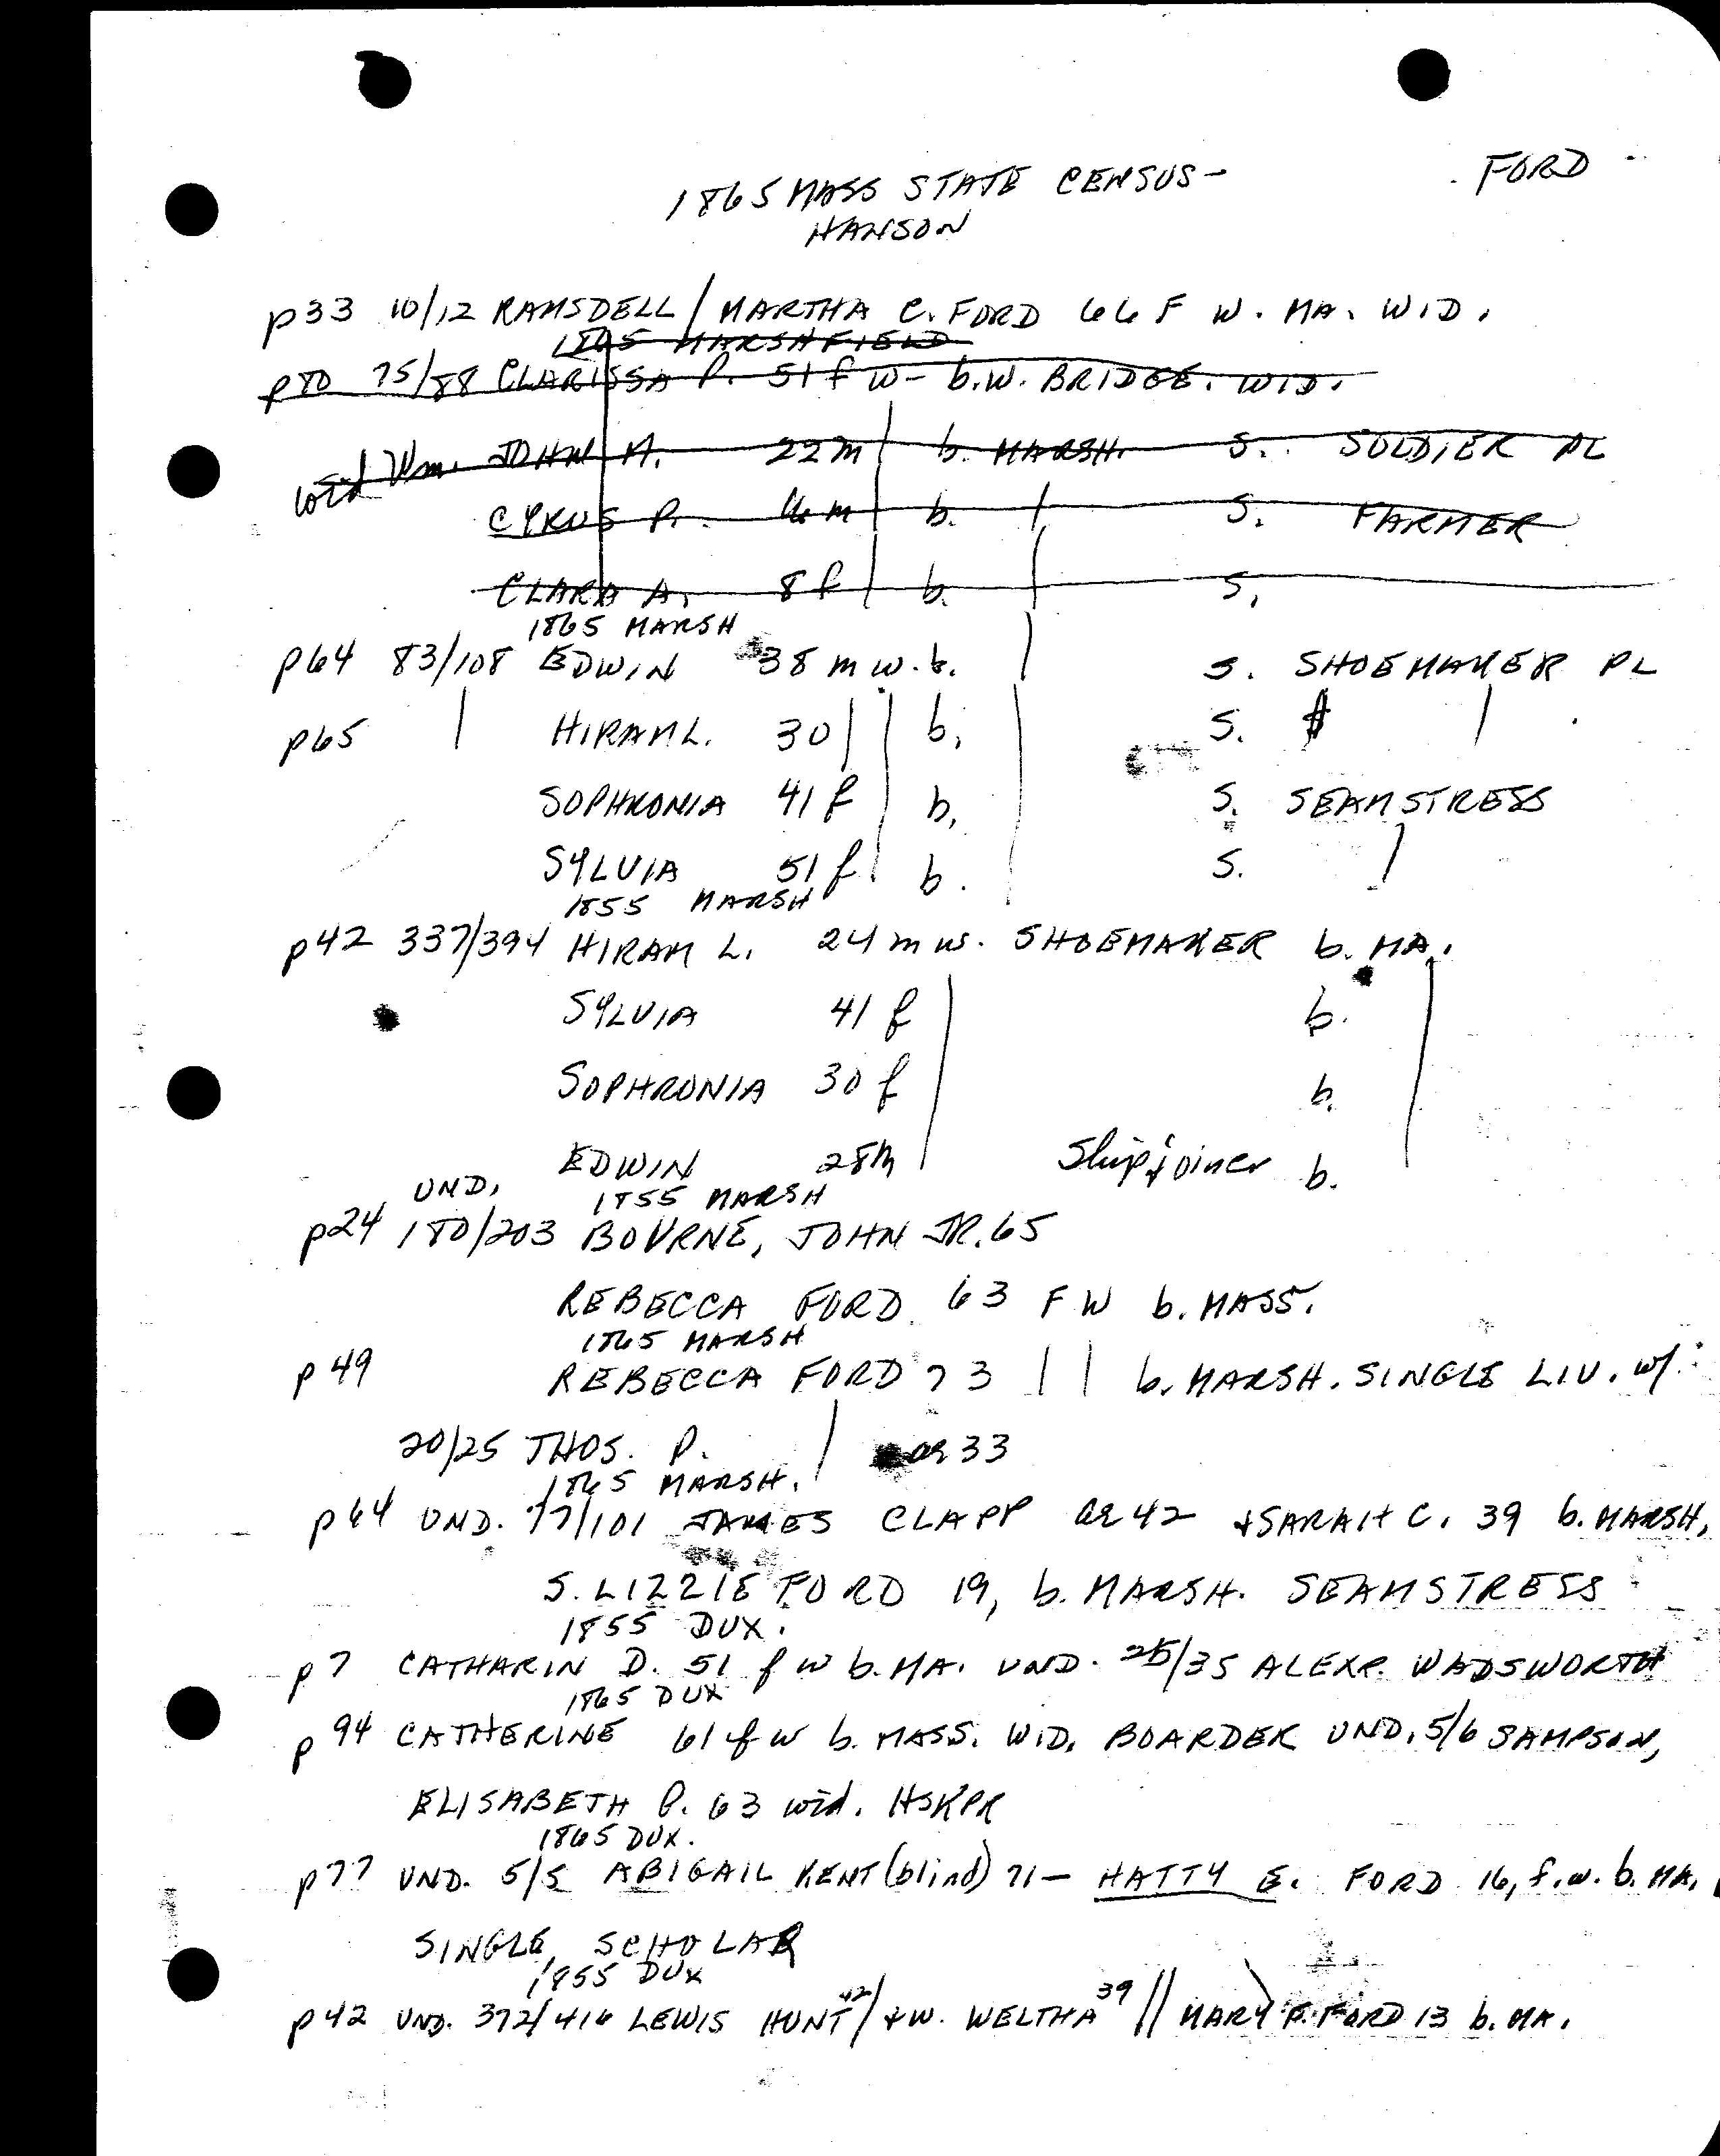 1865 MASS STATE CENSUS - FORD
HANSON
p33 10/12 RAMSDELL / MARTHA C. FORD 66 F W. MA. WID.
1865 MARSHFIELD
p80 75/88 CLARISSA P. 51 f W - b. W. BRIDGE. WID.
wid Wm. JOHN M. 22 m b. MARSH. S. SOLDIER PL
CYRUS P. 16 m b. S. FARMER
CLARA A. 8 f b. S.
1865 MARSH
p64 83/108 EDWIN 38 m w. b. S. SHOEMAKER PL
p65 HIRAM L. 30 b. S.
SOPHRONIA 41 f b. S. SEAMSTRESS
SYLVIA 51 f b. S.
1855 MARSH
p42 337/394 HIRAM L. 24 m w. SHOEMAKER b. MA.
SYLVIA 41 f b.
SOPHRONIA 30 f b.
EDWIN 28 m Shipjoiner b.
UND. 1855 MARSH
p24 180/203 BOURNE, JOHN JR. 65
REBECCA FORD 63 F W b. MASS.
1865 MARSH
p49 REBECCA FORD 73 b. MARSH. SINGLE LIV. w/
20/25 THOS. P. ae 33
1865 MARSH.
p64 UND. 77/101 JAMES CLAPP ae 42 + SARAH C. 39 b. MARSH,
S. LIZZIE FORD 19, b. MARSH. SEAMSTRESS
1855 DUX.
p7 CATHARIN D. 51 f w b. MA. UND. 25/35 ALEXR. WADSWORTH
1865 DUX
p94 CATHERINE 61 f w b. MASS. WID. BOARDER UND. 5/6 SAMPSON,
ELISABETH P. 63 wid. HSKPR
1865 DUX.
p77 UND. 5/5 ABIGAIL KENT (blind) 71 - HATTY E. FORD 16, f. w. b. MA.
SINGLE, SCHOLAR
1855 DUX
p42 UND. 372/416 LEWIS HUNT 42 / + W. WELTHA 39 // MARY F. FORD 13 b. MA.